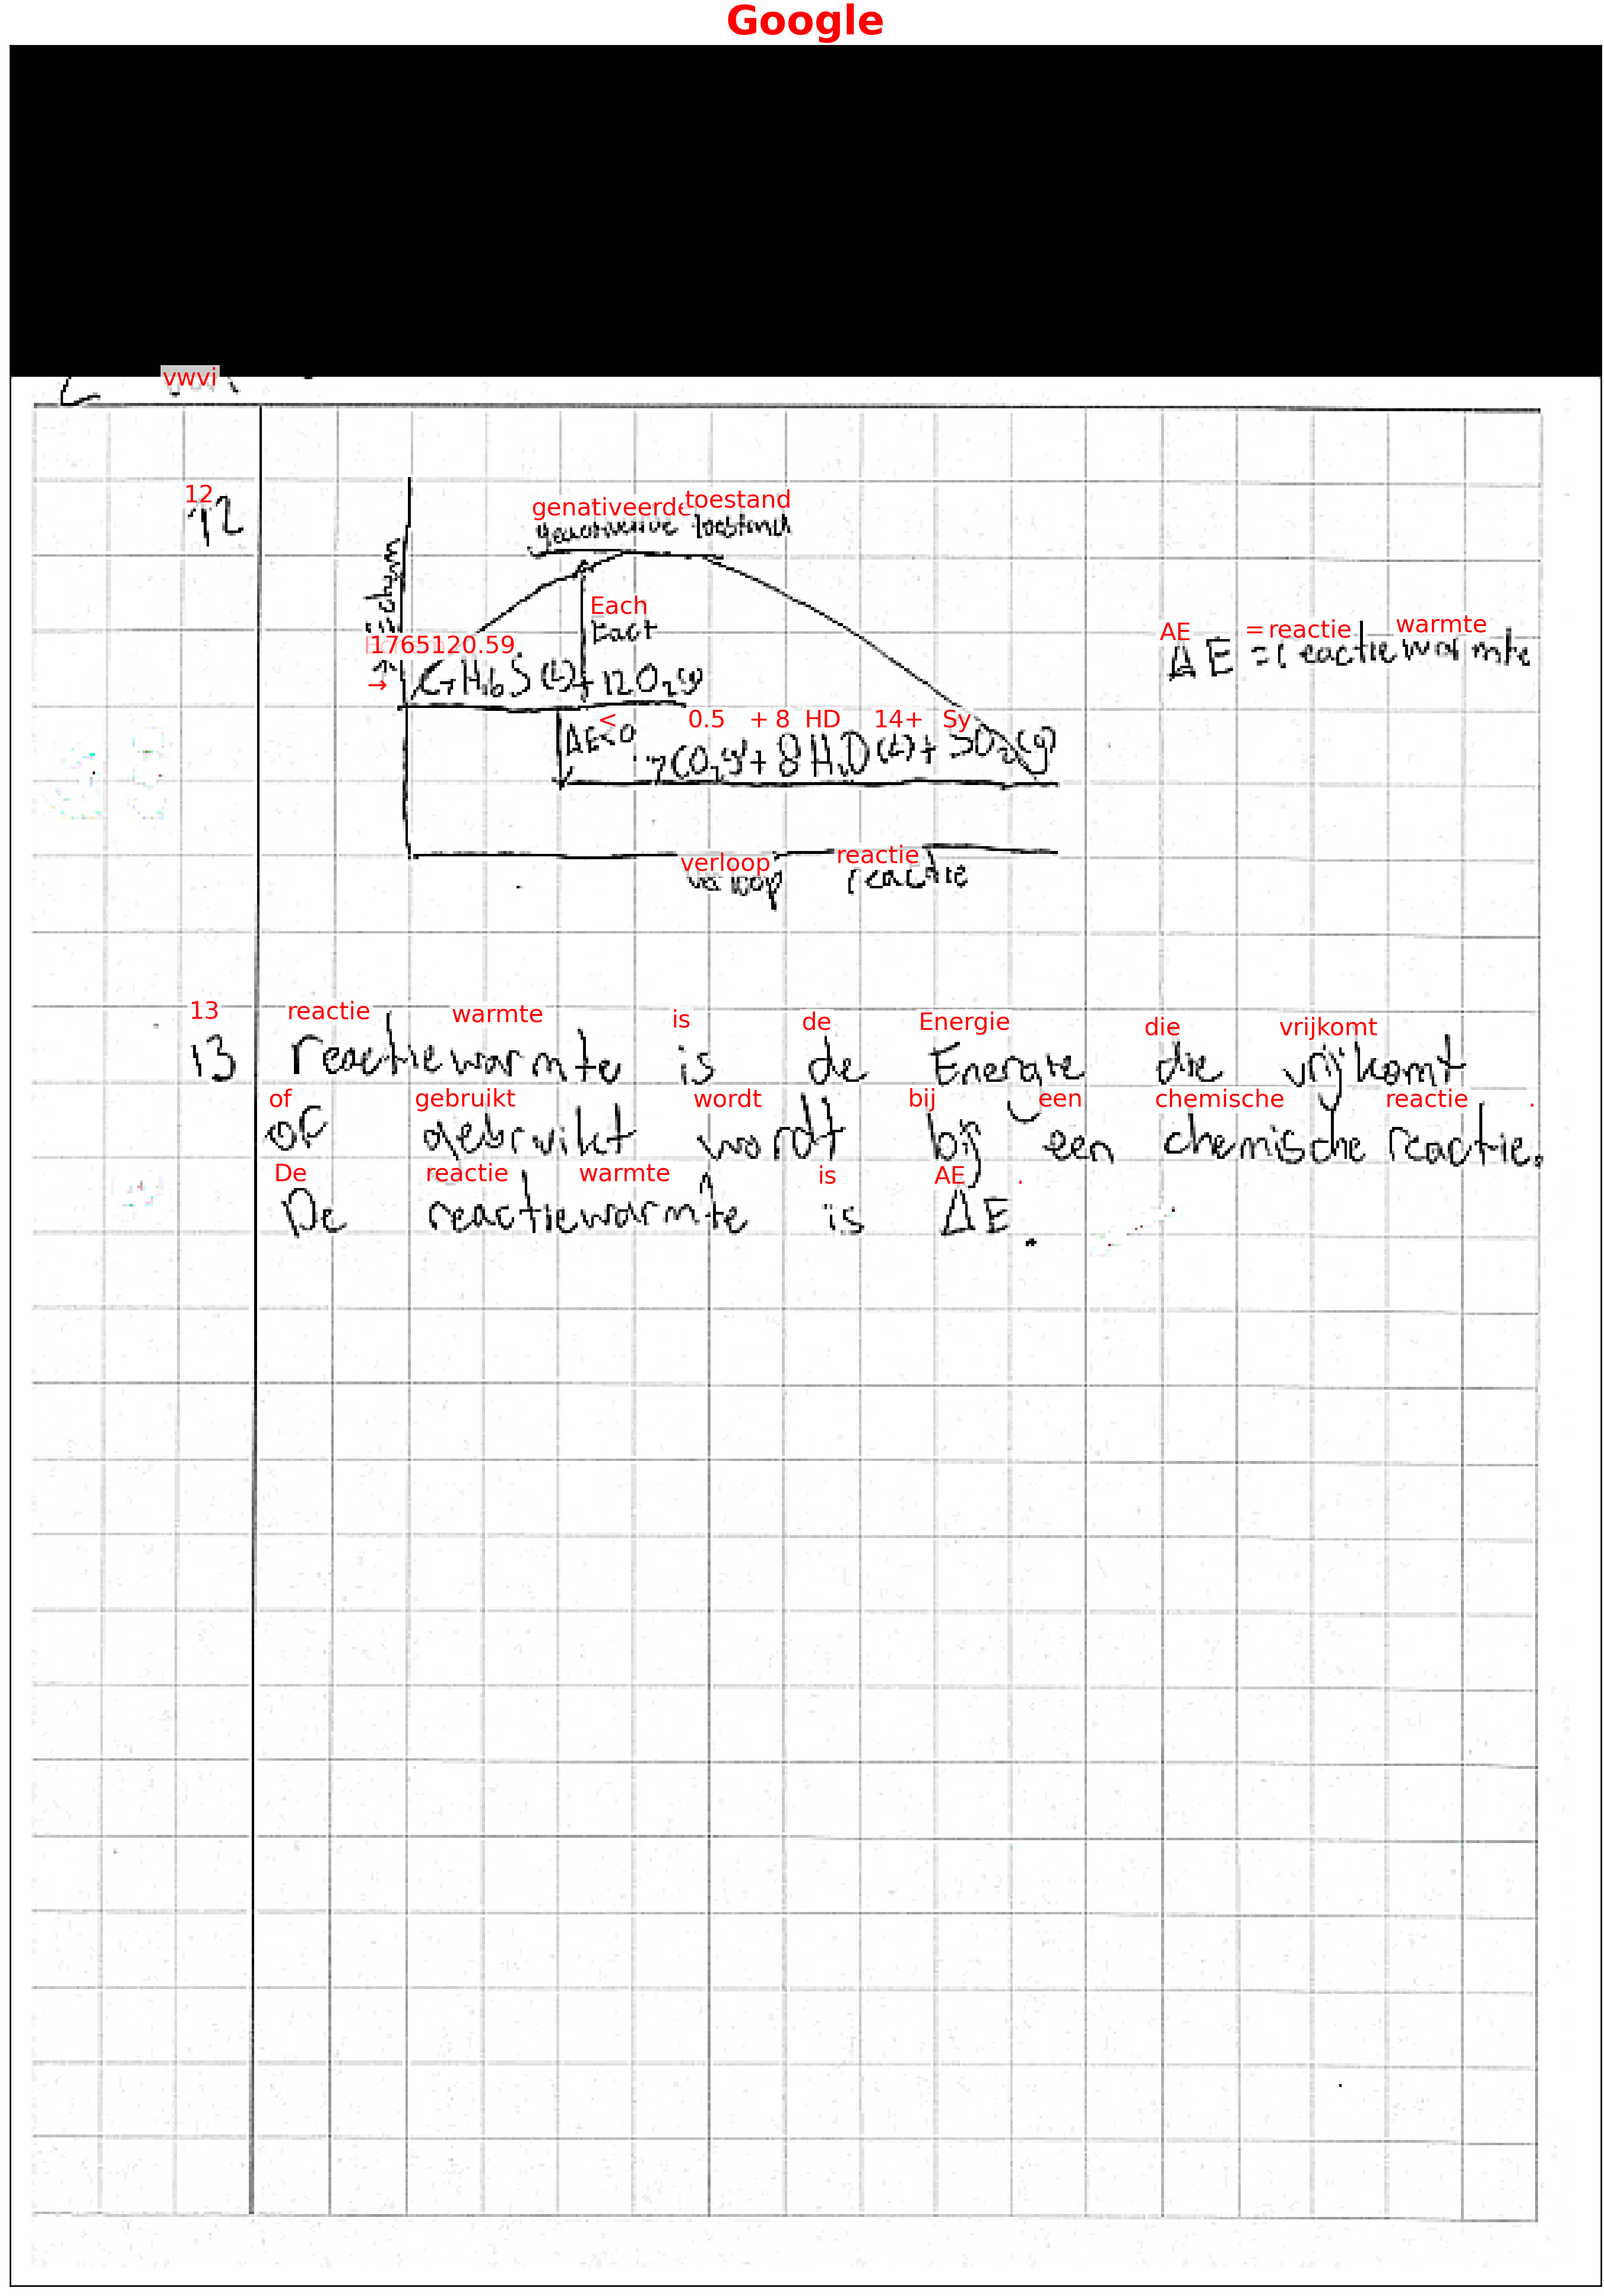 Google
vwvi
12
12
genativeerde toestand
geactiveerde toestand
Each
Eact
1765120.59
→
C7H16S (l) + 12O2(g)
AE = reactie warmte
ΔE = reactiewarmte
< 0.5 + 8 HD 14+ Sy
ΔE<0
7CO2(g) + 8 H2O (l) + SO2(g)
verloop reactie
verloop reactie
13 reactie warmte is de Energie die vrijkomt
13 reactiewarmte is de Energie die vrijkomt
of gebruikt wordt bij een chemische reactie .
of gebruikt wordt bij een chemische reactie.
De reactie warmte is AE .
De reactiewarmte is ΔE.